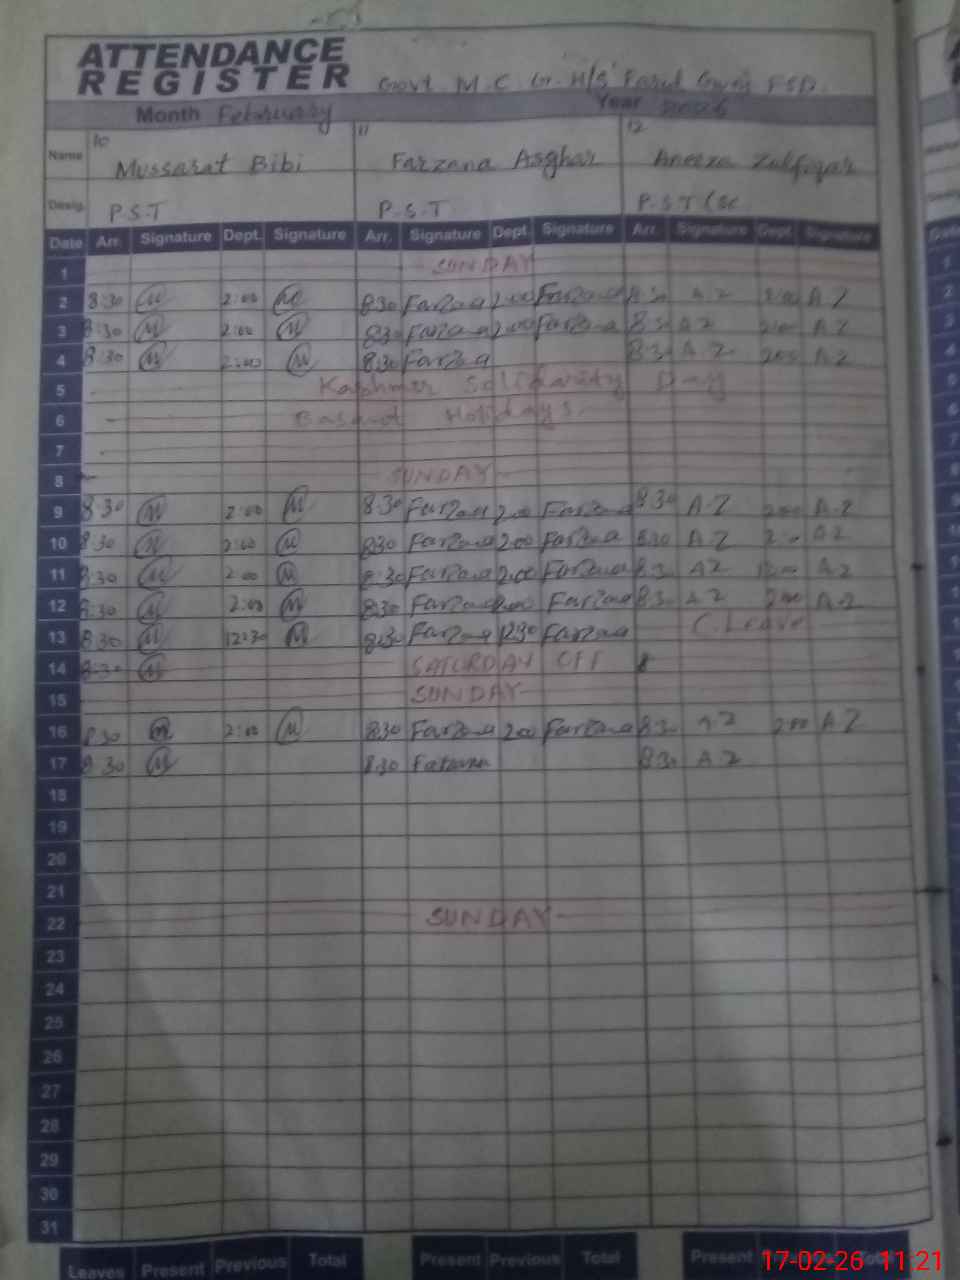 ATTENDANCE
REGISTER Govt. M.C
Month February Year 2026
10 11 12
Name Mussarat Bibi Farzana Asghar Aneeza Zulfiqar
Desig. P.S.T P.S.T P.S.T (SC
Date Arr. Signature Dept. Signature Arr. Signature Dept. Signature Arr. Signature Dept. Signature
1 SUNDAY
2 8:30 M 2:00 M 8:30 Farzana 2:00 Farzana 8:30 A.Z 2:00 A.Z
3 8:30 M 2:00 M 8:30 Farzana 2:00 Farzana 8:30 A.Z 2:00 A.Z
4 8:30 M 2:00 M 8:30 Farzana 8:30 A.Z 2:00 A.Z
5 Kashmir Solidarity Day
6 Basant Holidays.
7
8 SUNDAY
9 8:30 M 2:00 M 8:30 Farzana 2:00 Farzana 8:30 A.Z 2:00 A.Z
10 8:30 M 2:00 M 8:30 Farzana 2:00 Farzana 8:30 A.Z 2:00 A.Z
11 8:30 M 2:00 M 8:30 Farzana 2:00 Farzana 8:30 A.Z A.Z
12 8:30 M 2:00 M 8:30 Farzana 2:00 Farzana 8:30 A.Z 2:00 A.Z
13 8:30 M 12:30 M 8:30 Farzana 12:30 Farzana C.Leave
14 8:30 M SATURDAY OFF
15 SUNDAY
16 8:30 M 2:00 M 8:30 Farzana 2:00 Farzana 8:30 A.Z 2:00 A.Z
17 8:30 M 8:30 Farzana 8:30 A.Z
18
19
20
21
22 SUNDAY
23
24
25
26
27
28
29
30
31
Leaves Present Previous Total Present Previous Total Present Total
17-02-26 11:21